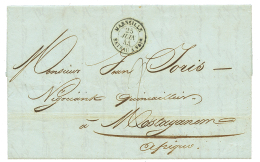 MARSEILLE
25
JUIN
Monsieur Jean Joris
Négociant Quincaillier
à Mostaganem
Afrique